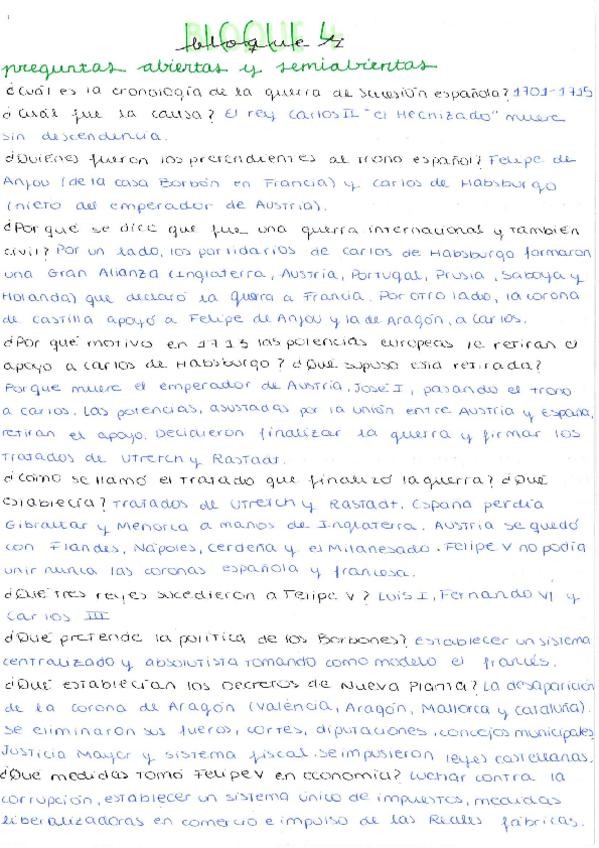 BLOQUE 4
bloque 4
preguntas abiertas y semiabiertas
¿Cuál es la cronología de la guerra de sucesión española? 1701-1715
¿Cuál fue la causa? El rey Carlos II "el Hechizado" muere
sin descendencia.
¿Quiénes fueron los pretendientes al trono español? Felipe de
Anjou (de la casa Borbón en Francia) y Carlos de Habsburgo
(nieto del emperador de Austria).
¿Por qué se dice que fue una guerra internacional y también
civil? Por un lado, los partidarios de Carlos de Habsburgo formaron
una Gran Alianza (Inglaterra, Austria, Portugal, Prusia, Saboya y
Holanda) que declaró la guerra a Francia. Por otro lado, la corona
de Castilla apoyó a Felipe de Anjou y la de Aragón, a Carlos.
¿Por qué motivo en 1715 las potencias europeas le retiran el
apoyo a Carlos de Habsburgo? ¿Qué supuso esta retirada?
Porque muere el emperador de Austria, José I, pasando el trono
a Carlos. Las potencias, asustadas por la unión entre Austria y España,
retiran el apoyo. Decidieron finalizar la guerra y firmar los
Tratados de Utrech y Rastadt.
¿Cómo se llamó el tratado que finalizó la guerra? ¿Qué
establecía? Tratados de Utrech y Rastadt. España perdía
Gibraltar y Menorca a manos de Inglaterra. Austria se quedó
con Flandes, Nápoles, Cerdeña y el Milanesado. Felipe V no podía
unir nunca las coronas española y francesa.
¿Qué tres reyes sucedieron a Felipe V? Luis I, Fernando VI y
Carlos III
¿Qué pretende la política de los Borbones? Establecer un sistema
centralizado y absolutista tomando como modelo el francés.
¿Qué establecían los Decretos de Nueva Planta? La desaparición
de la corona de Aragón (Valencia, Aragón, Mallorca y Cataluña).
Se eliminaron sus fueros, cortes, diputaciones, concejos municipales,
Justicia Mayor y sistema fiscal. Se impusieron leyes castellanas.
¿Qué medidas tomó Felipe V en economía? Luchar contra la
corrupción, establecer un sistema único de impuestos, medidas
liberalizadoras en comercio e impulso de las Reales fábricas.